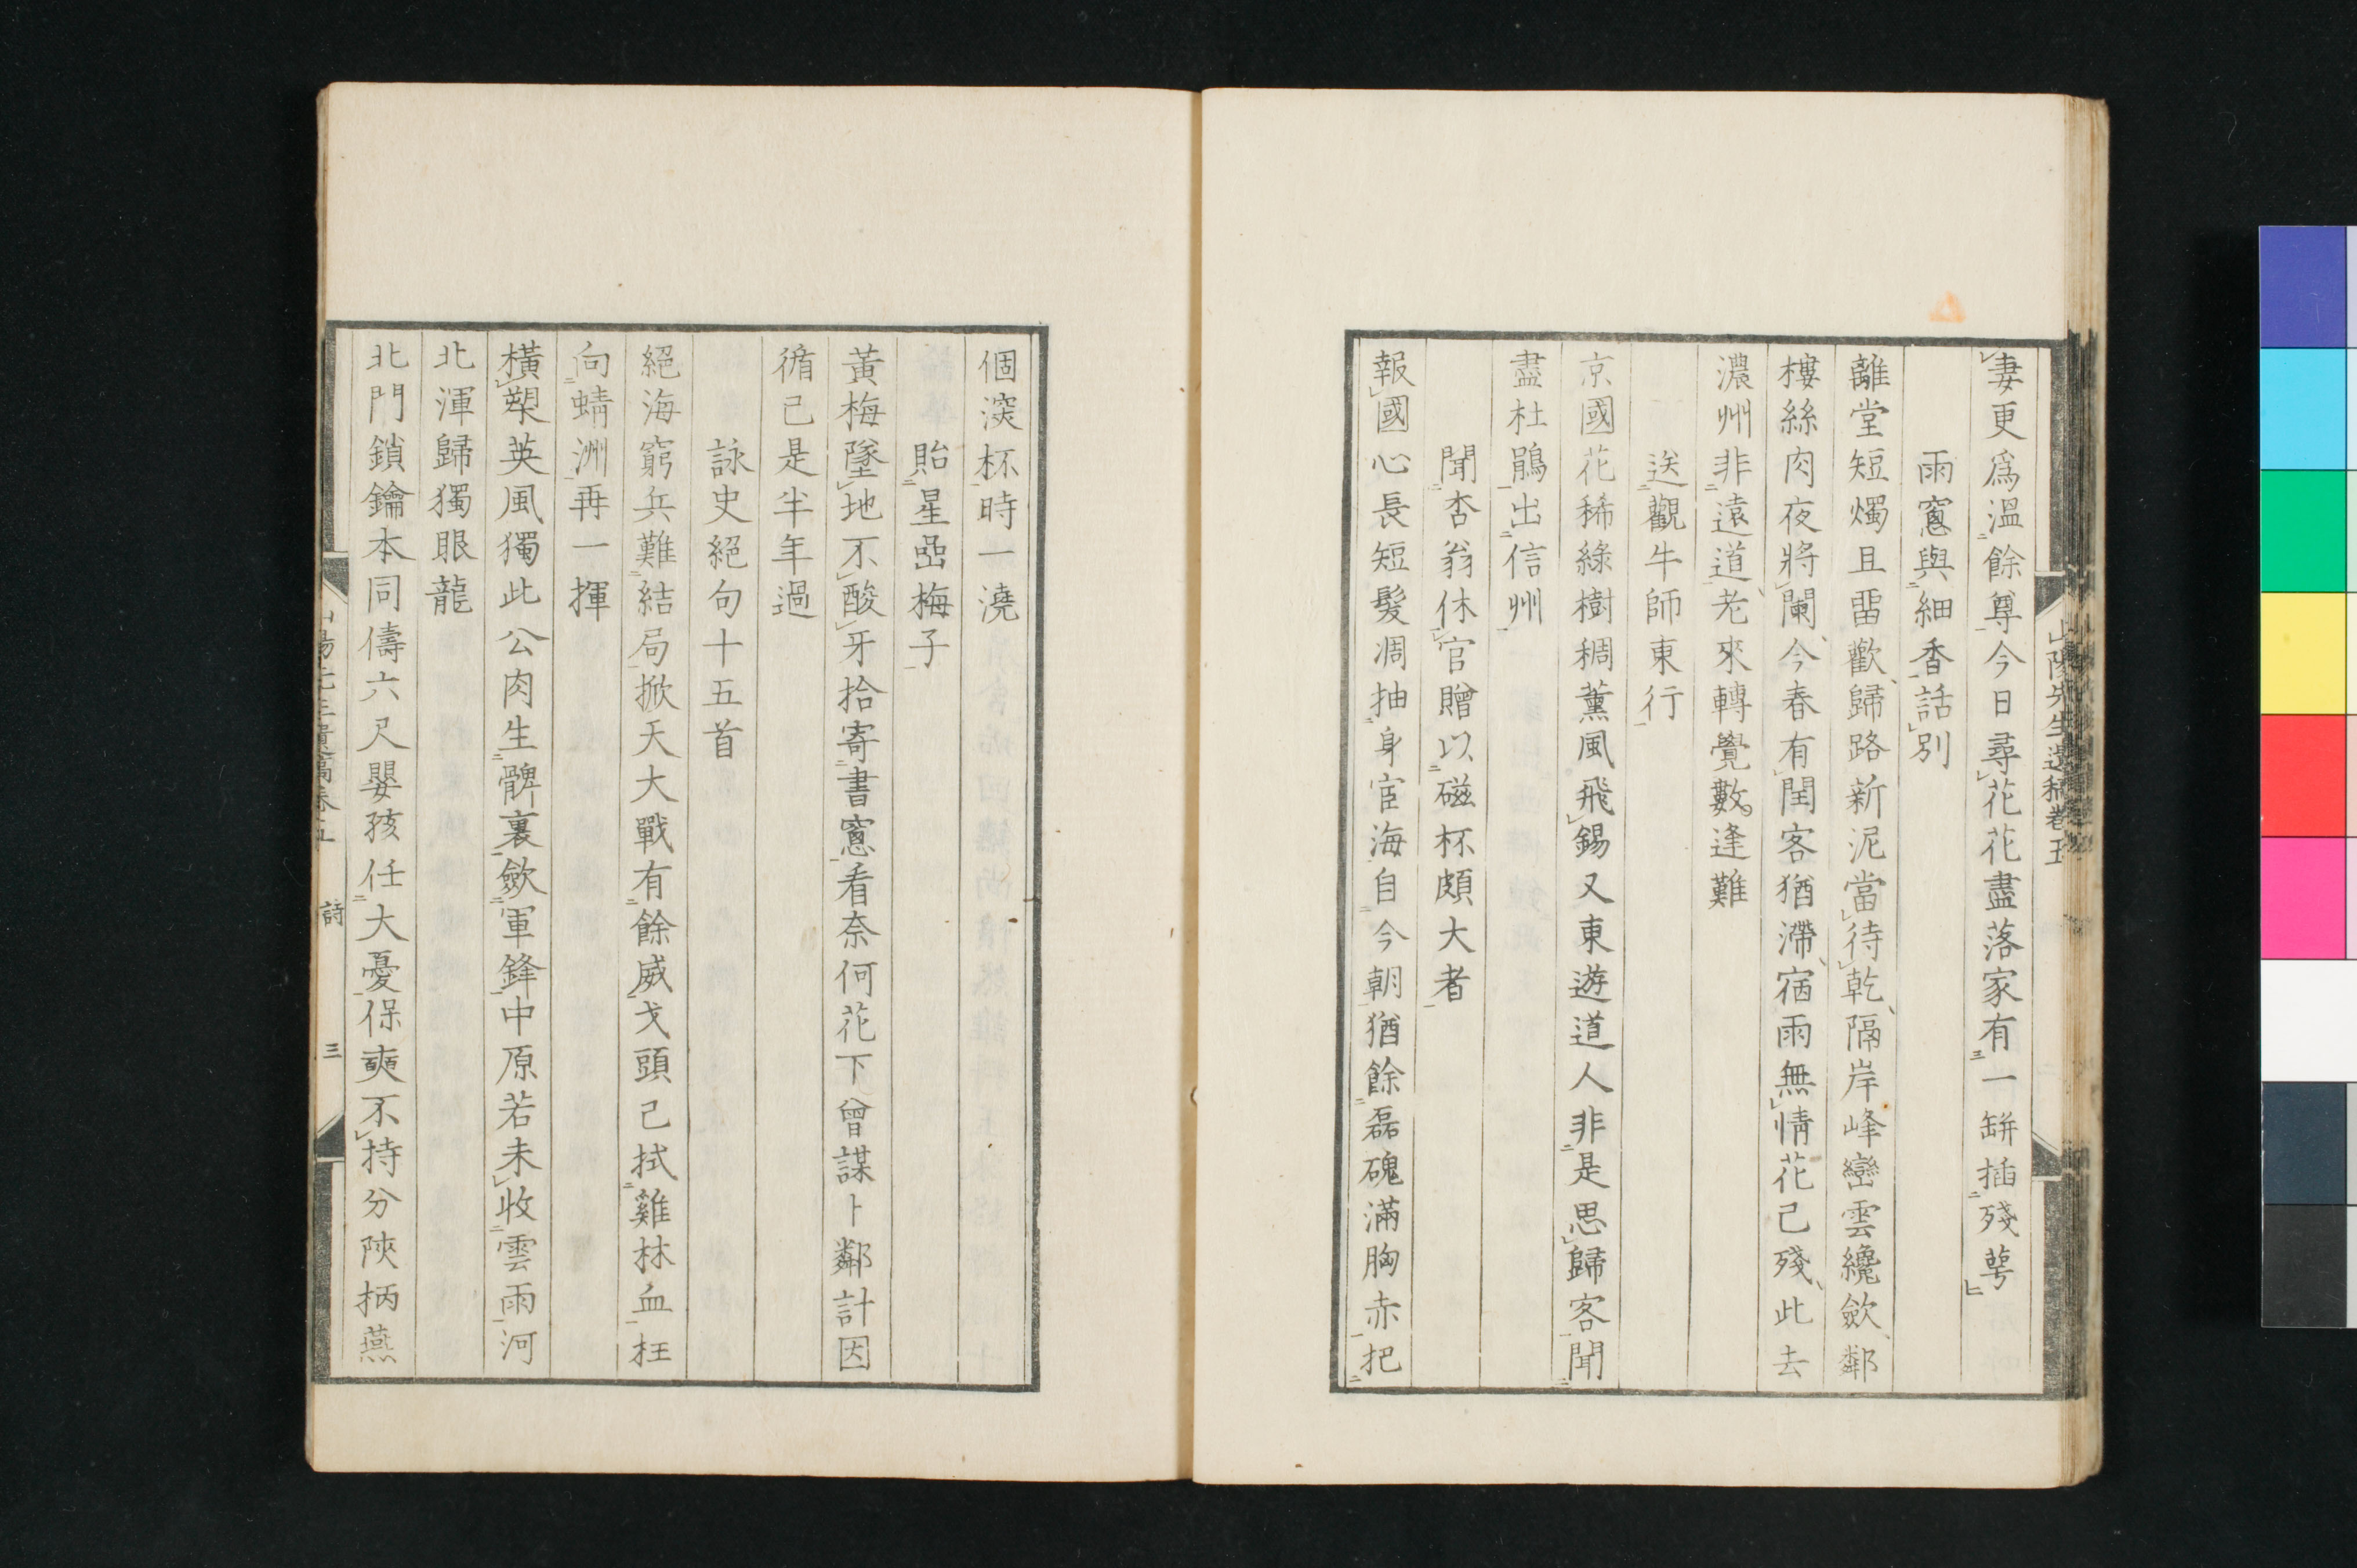 山陽先生遺稿卷五
妻更爲溫餘尊今日尋花花盡落家有一缾插殘萼
雨窻與細香話別
離堂短燭且畱歡歸路新泥當待乾隔岸峰巒雲纔歛鄰
樓絲肉夜將闌今春有閏客猶滯宿雨無情花已殘此去
濃州非遠道老來轉覺數逢難
送觀牛師東行
京國花稀綠樹稠薰風飛錫又東遊道人非是思歸客聞
盡杜鵑出信州
聞杏翁休官贈以磁杯頗大者
報國心長短髮凋抽身宦海自今朝猶餘磊磈滿胸赤把
個深杯時一澆
貽星嵒梅子
黃梅墜地不酸牙拾寄書窻看奈何花下曾謀卜鄰計因
循已是半年過
詠史絕句十五首
絕海窮兵難結局掀天大戰有餘威戈頭已拭雞林血枉
向蜻洲再一揮
橫槊英風獨此公肉生髀裏歛軍鋒中原若未收雲雨河
北渾歸獨眼龍
北門鎖鑰本同儔六尺嬰孩任大憂保奭不持分陝柄燕
山陽先生遺稿卷五 詩 三